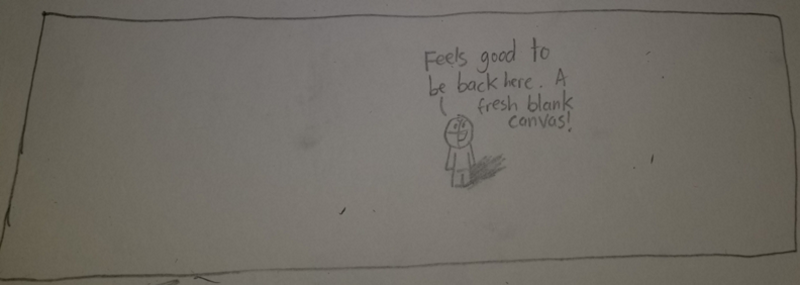 Feels good to
be back here. A
fresh blank
canvas!